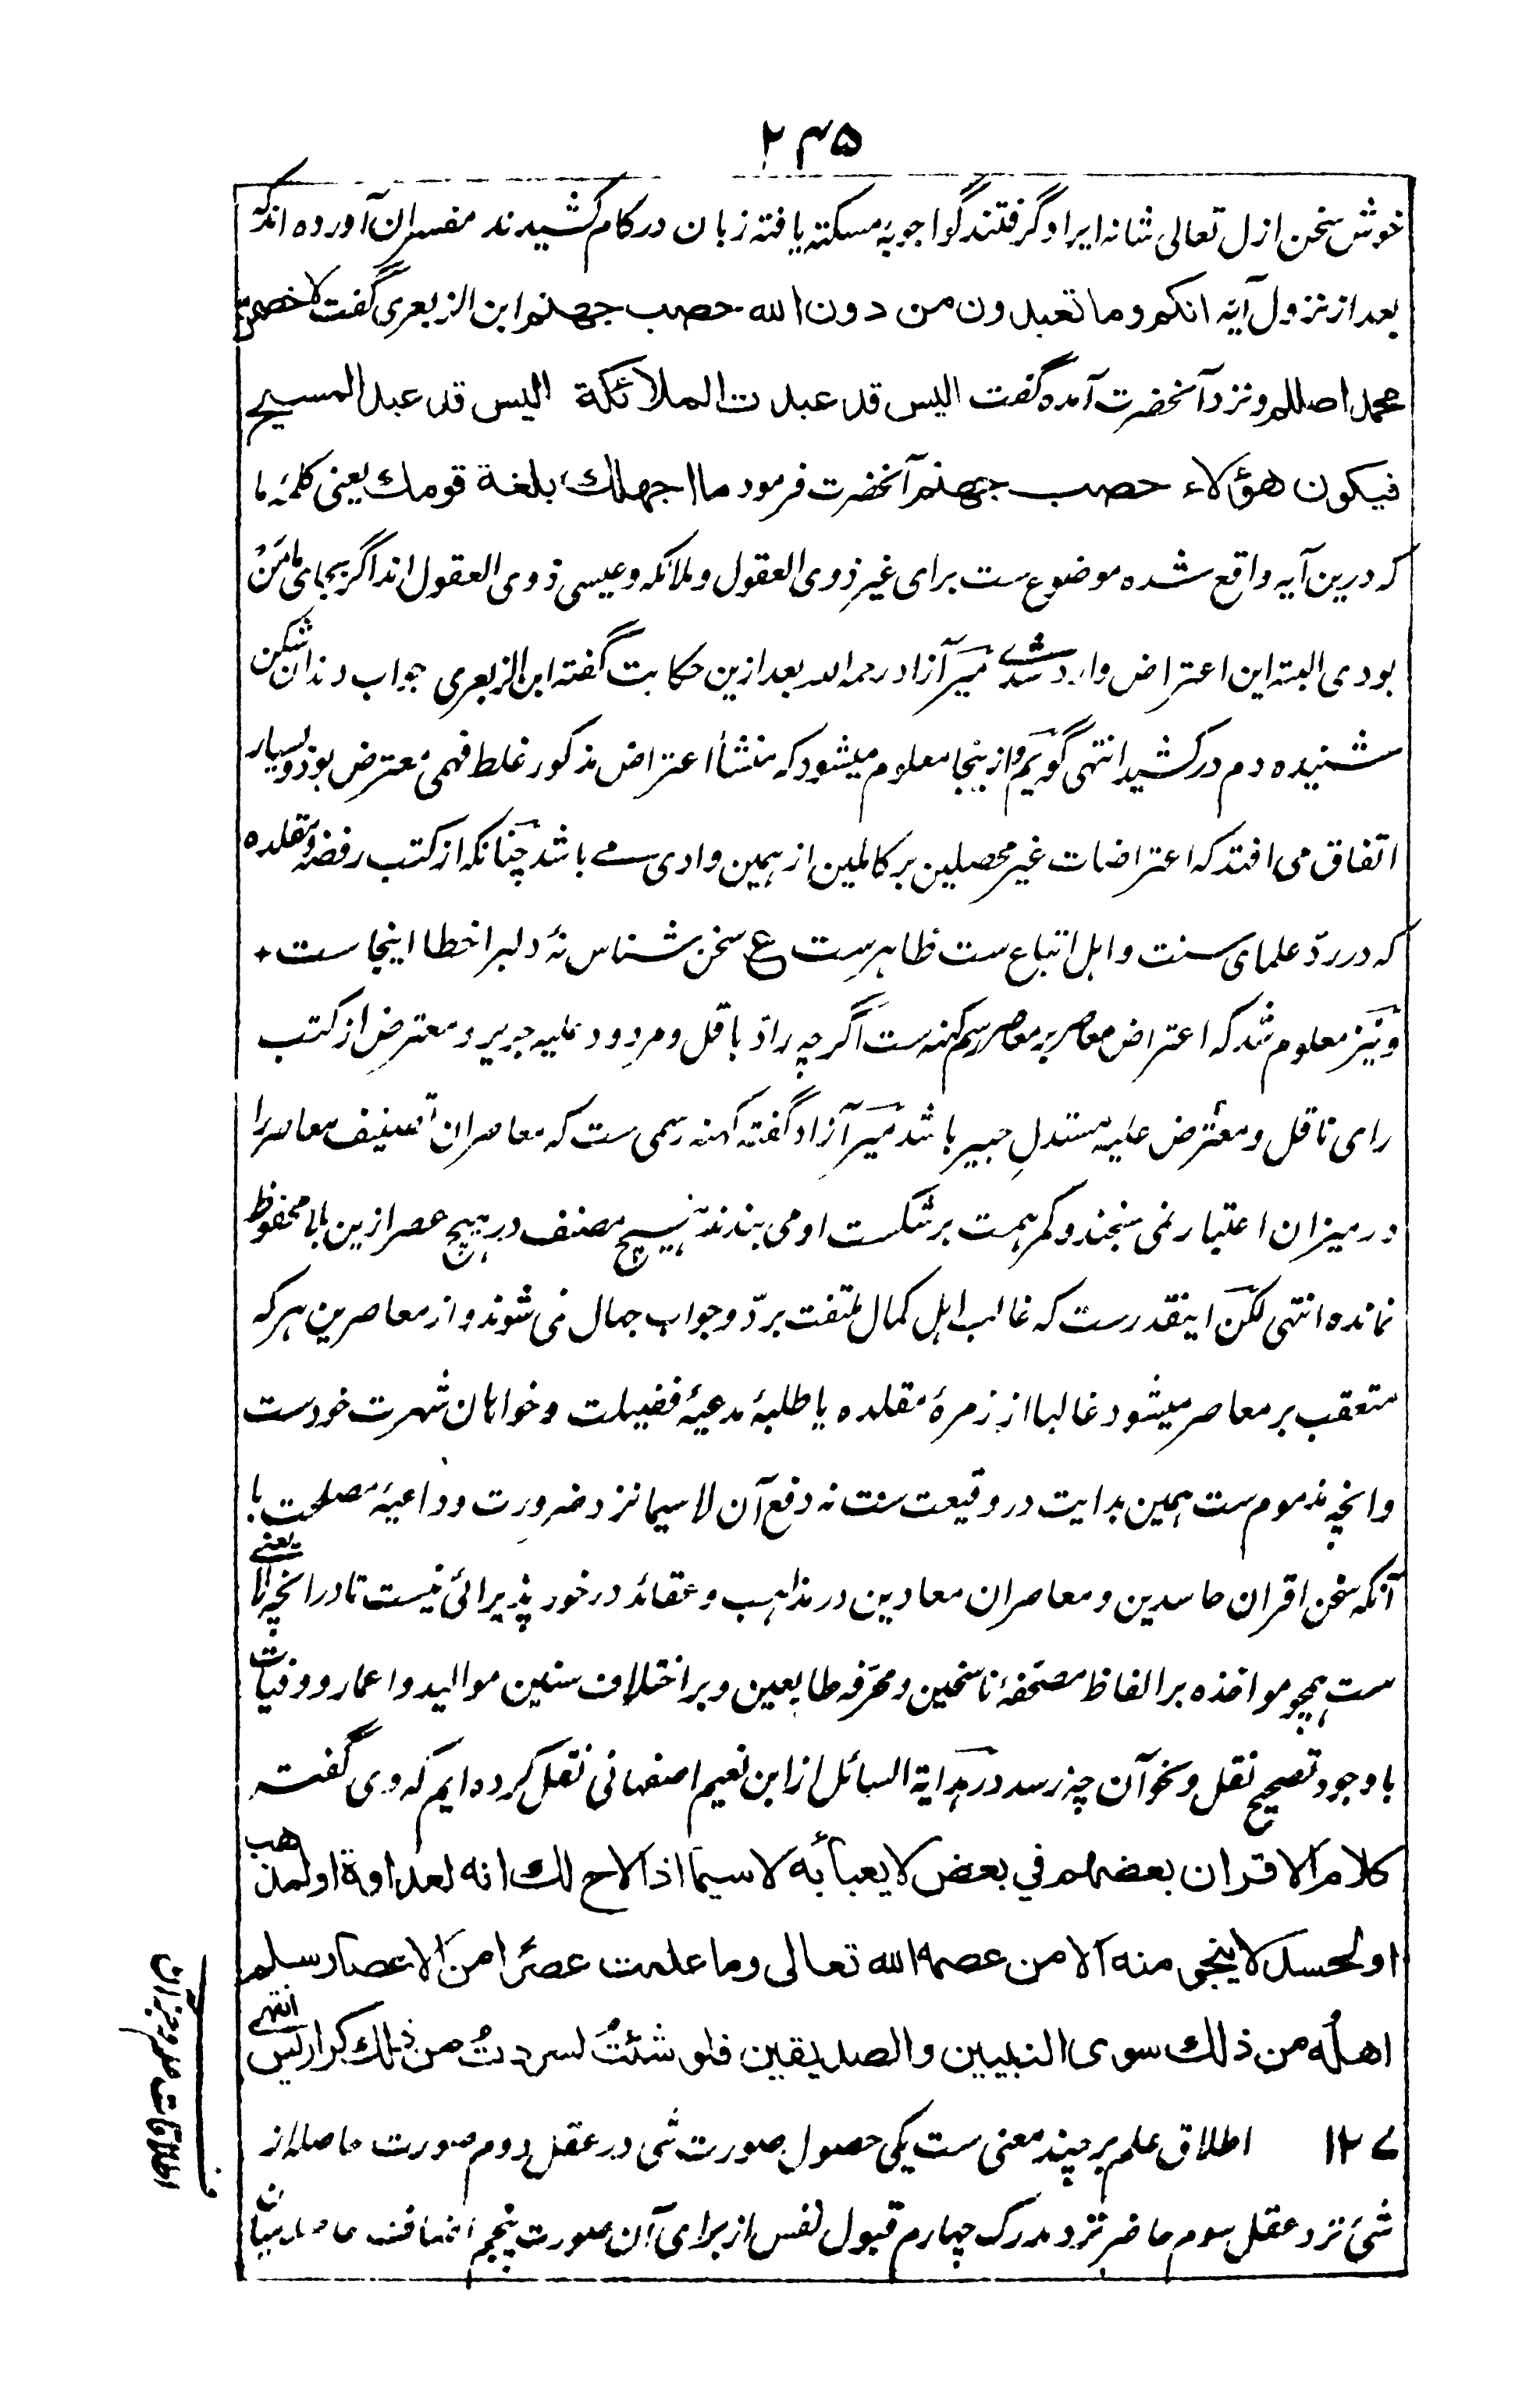 ۲۴۵
خوش سخن ازل تعالی شانه ایراد گرفتند گو اجوبهٔ مسکته یافته زبان در کام کشیدند مفسران آورده اند که
بعد از نزول آیه انکم وما تعبدون من دون الله حصب جهنم ابن الزبعری گفت لاخصمن
محمدا صللم ونزد آنحضرت آمده گفت الیس قد عبدت الملائکة الیس قد عبد المسیح
فیکون هؤلاء حصب جهنم آنحضرت فرمود ما اجهلك بلغة قومك یعنی کلمهٔ ما
که درین آیه واقع شده موضوع ست برای غیر ذوی العقول وملائکه وعیسی ذوی العقول اند اگر بجای ما مَنْ
بودی البته این اعتراض وارد شدے میر آزاد رحمه الله بعد ازین حکایت گفته ابن الزبعری جواب دندان شکن
شنیده دم در کشید انتهی گویم وازینجا معلوم میشود که منشأ اعتراض مذکور غلط فهمی معترض بود وبسیار
اتفاق می افتد که اعتراضات غیر محصلین بر کاملین از همین وادی مے باشد چنانکه از کتب رفضه ومقلده
که در ردّ علمای سنت واهل اتباع ست ظاهرست ع سخن شناس نهٔ دلبرا خطا اینجاست
ونیز معلوم شد که اعتراض معاصر بر معاصر رسم کهنه ست اگرچه رادّ باقل ومردود علیه جریر ومعترض از کتب
رای ناقل ومعترض علیه مستدلِ خبیر باشد میر آزاد گفته کهنه رسمی ست که معاصران تصنیف معاصر را
در میزان اعتبار نمی سنجند وکمر همت بر شکست او می بندند هیچ مصنف در هیچ عصر ازین بلا محفوظ
نمانده انتهی لکن اینقدرست که غالب اهل کمال ملتفت بردّ وجواب جهال نمی شوند واز معاصرین هر که
متعقب بر معاصر میشود غالبا از زمرهٔ مقلده یا طلبهٔ مدعیهٔ فضیلت وخواهان شهرت خودست
وانچه مذموم ست همین بدایت در وقیعت ست نه دفع آن لاسیما نزد ضرورت وداعیهٔ مصلحت با
آنکه سخن اقران حاسدین ومعاصران معادین در مذاهب وعقائد در خور پذیرائی نیست تا در انچه لا یعنے
ست همچو مواخذه بر الفاظ مصحّفهٔ ناسخین ومحرّفه طابعین وبر اختلاف سنین موالید واعمار ووفیات
با وجود تصحیح نقل ونحو آن چه رسد در هدایة السائل از ابن نعیم اصفهانی نقل کرده ایم که وی گفته
کلام الاقران بعضهم في بعض لا یعبأ به لاسیما اذا لاح لك انه لعداوة او لمذهب
او لحسد لا ینجی منه الا من عصمه الله تعالی وما علمت عصرًا من الاعصار سلم
اهله من ذلك سوی النبیین والصدیقین فلو شئتُ لسردتُ من ذلك کراریس انتهے
۱۲۷ اطلاق علم بر چند معنی ست یکی حصول صورت شی در عقل دوم صورت حاصله از
شیٔ نزد عقل سوم حاضر نزد مدرک چهارم قبول نفس از برای آن صورت پنجم اضافت حاصله میان
اطلاقات علم و جز آن